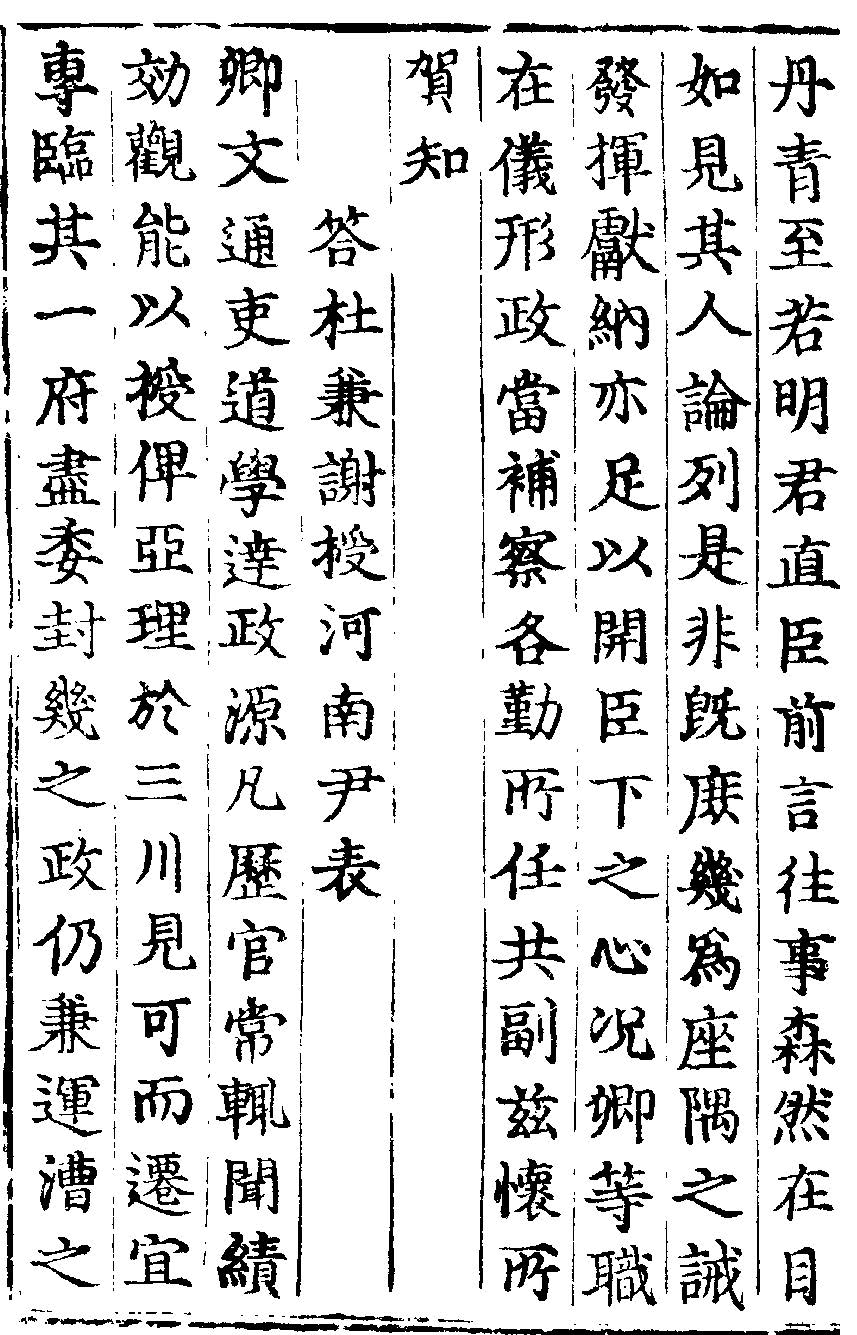 丹青至若明君直臣前言往事森然在目
如見其人論列是非旣庶幾爲座隅之誡
發揮獻納亦足以開臣下之心况卿等職
在儀形政當補察各勤所任共副兹懷所
賀知
答杜兼謝授河南尹表
卿文通吏道學達政源凡歷官常輒聞績
効觀能以授俾亞理於三川見可而遷宜
專臨其一府盡委封幾之政仍兼運漕之